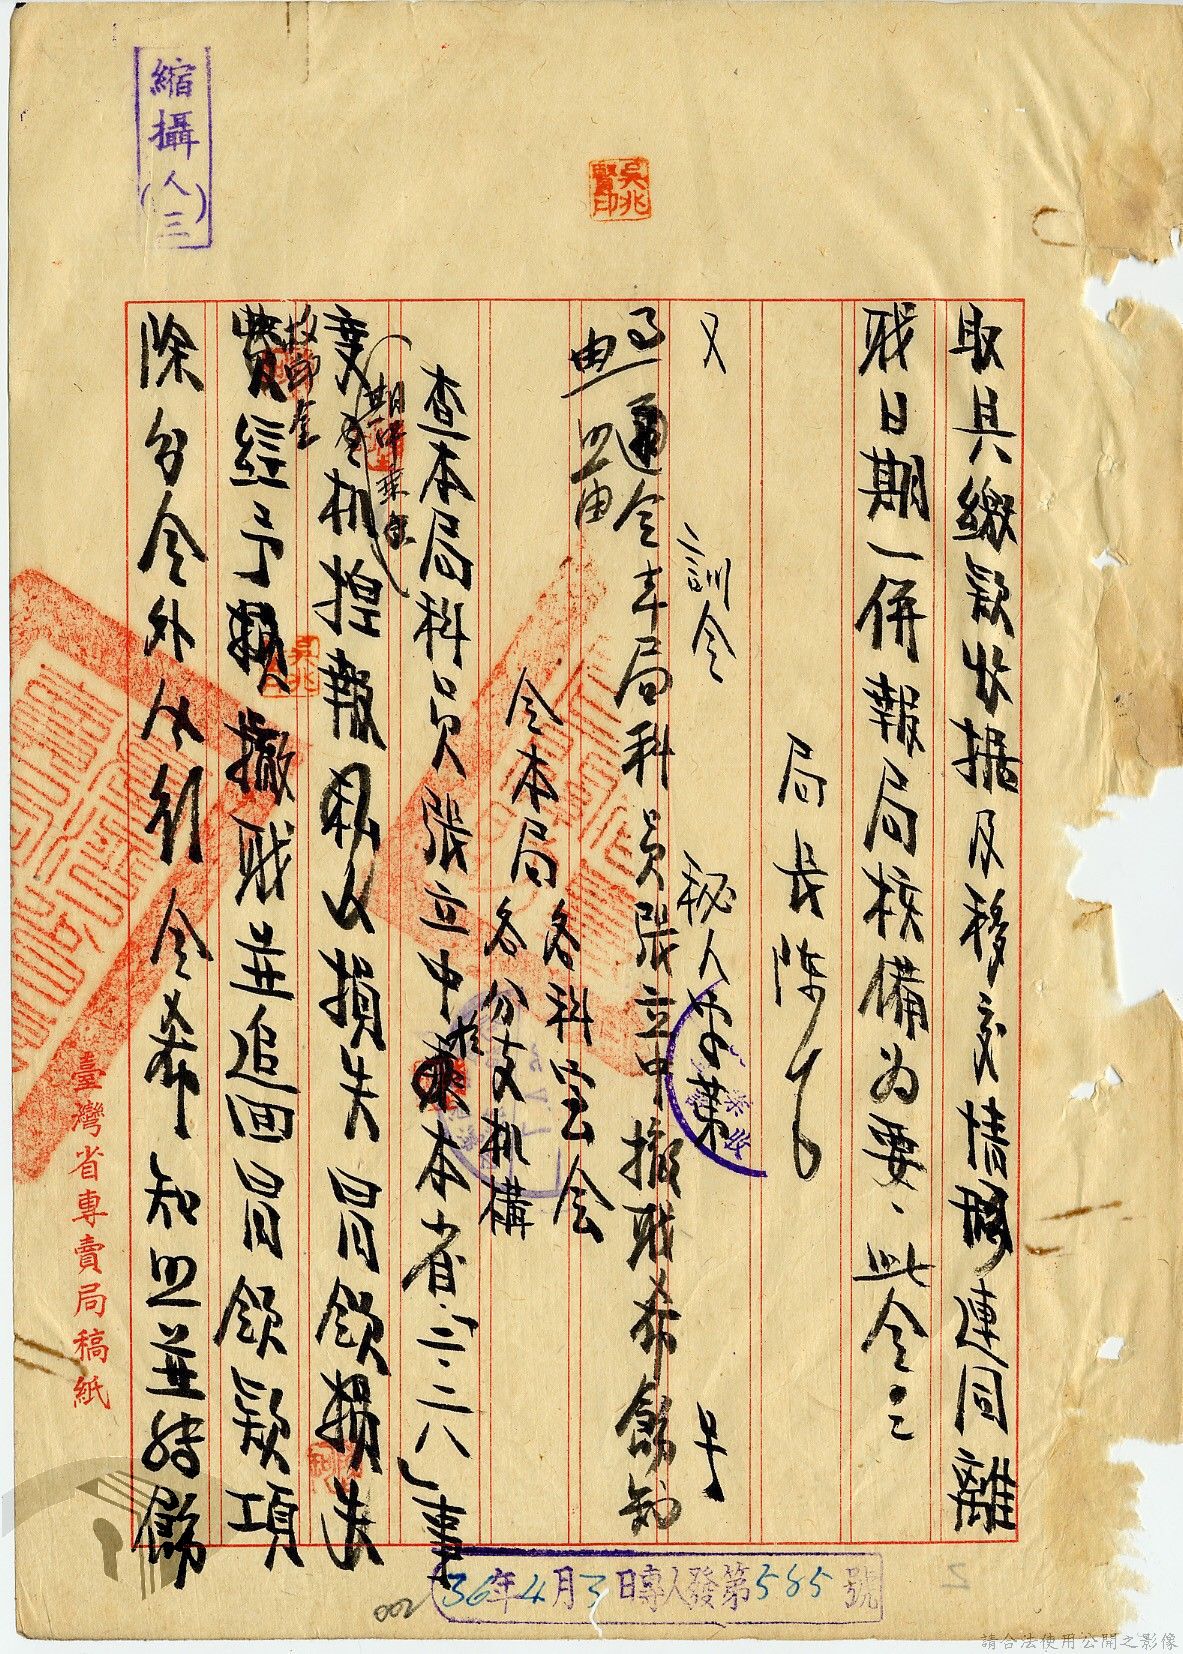 縮攝
(人三)
吳兆
賢印
取具繳款收据及移交情形連同離
职日期一併報局核備為要、此令三
局長陳
又 訓令 秘人 字第 号
通令本局科員張立中撤职希飭知
由
令本局各科室会
各分支机構
查本局科員張立中於本省「二·二八」事
变期中乘机捏報私人損失冒領損失
救卹金
費經予撤职並追回冒領款項
除分令外合行令希知照並轉飭
臺灣省專賣局稿紙
36年4月3日專人發第585號
002
2
請合法使用公開之影像